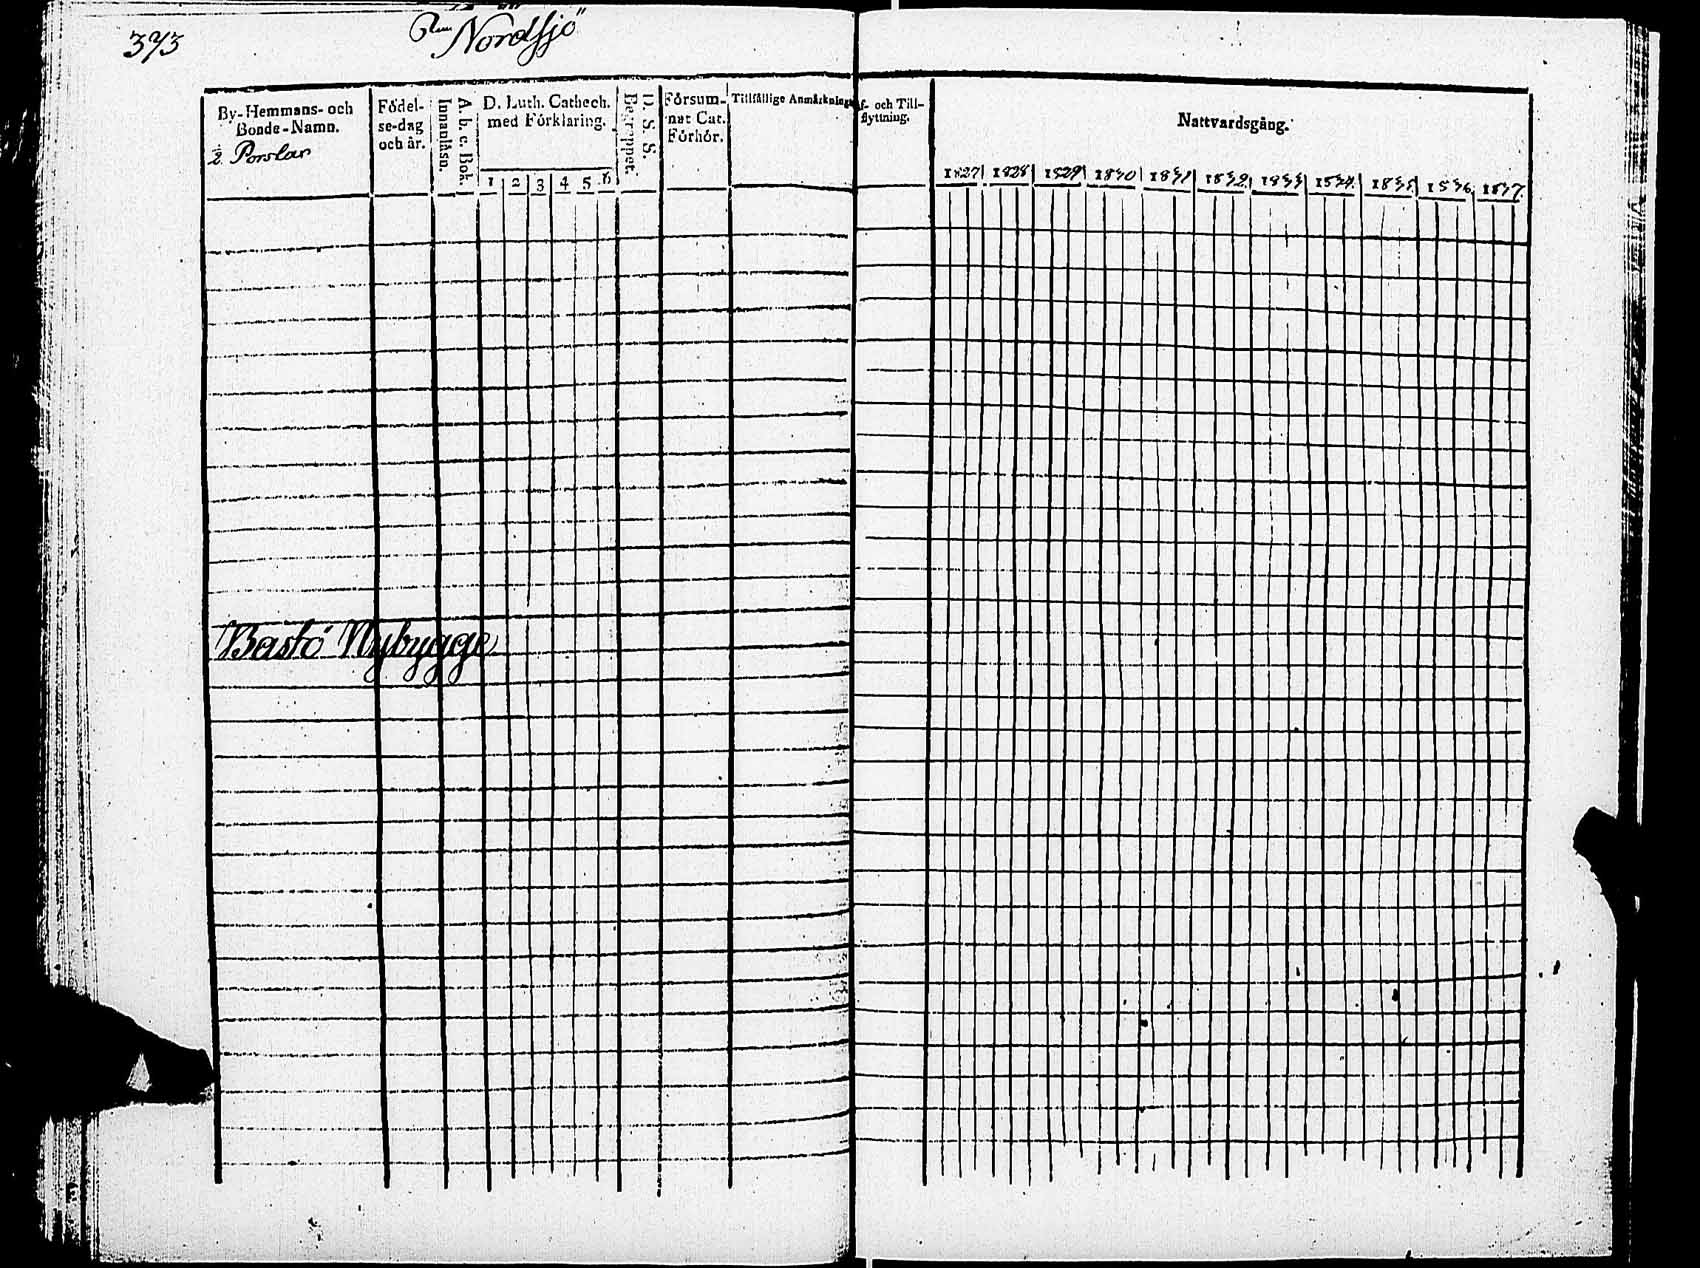 373
Nordsjö
By-Hemmans- och
Bonde-Namn.
2. Porslax
Födel-
se-dag
och år.
Innanläsn.
A. b. c. Bok.
D. Luth. Cathech.
med Förklaring.
1 2 3 4 5 6
D. S. S.
Begreppet.
Försum-
nat Cat.
Förhör.
Tillfällige Anmärkning
f- och Till-
flyttning.
Nattvardsgång.
1827 1828 1829 1830 1831 1832 1833 1834 1835 1836 1837
Bastö Nybygge